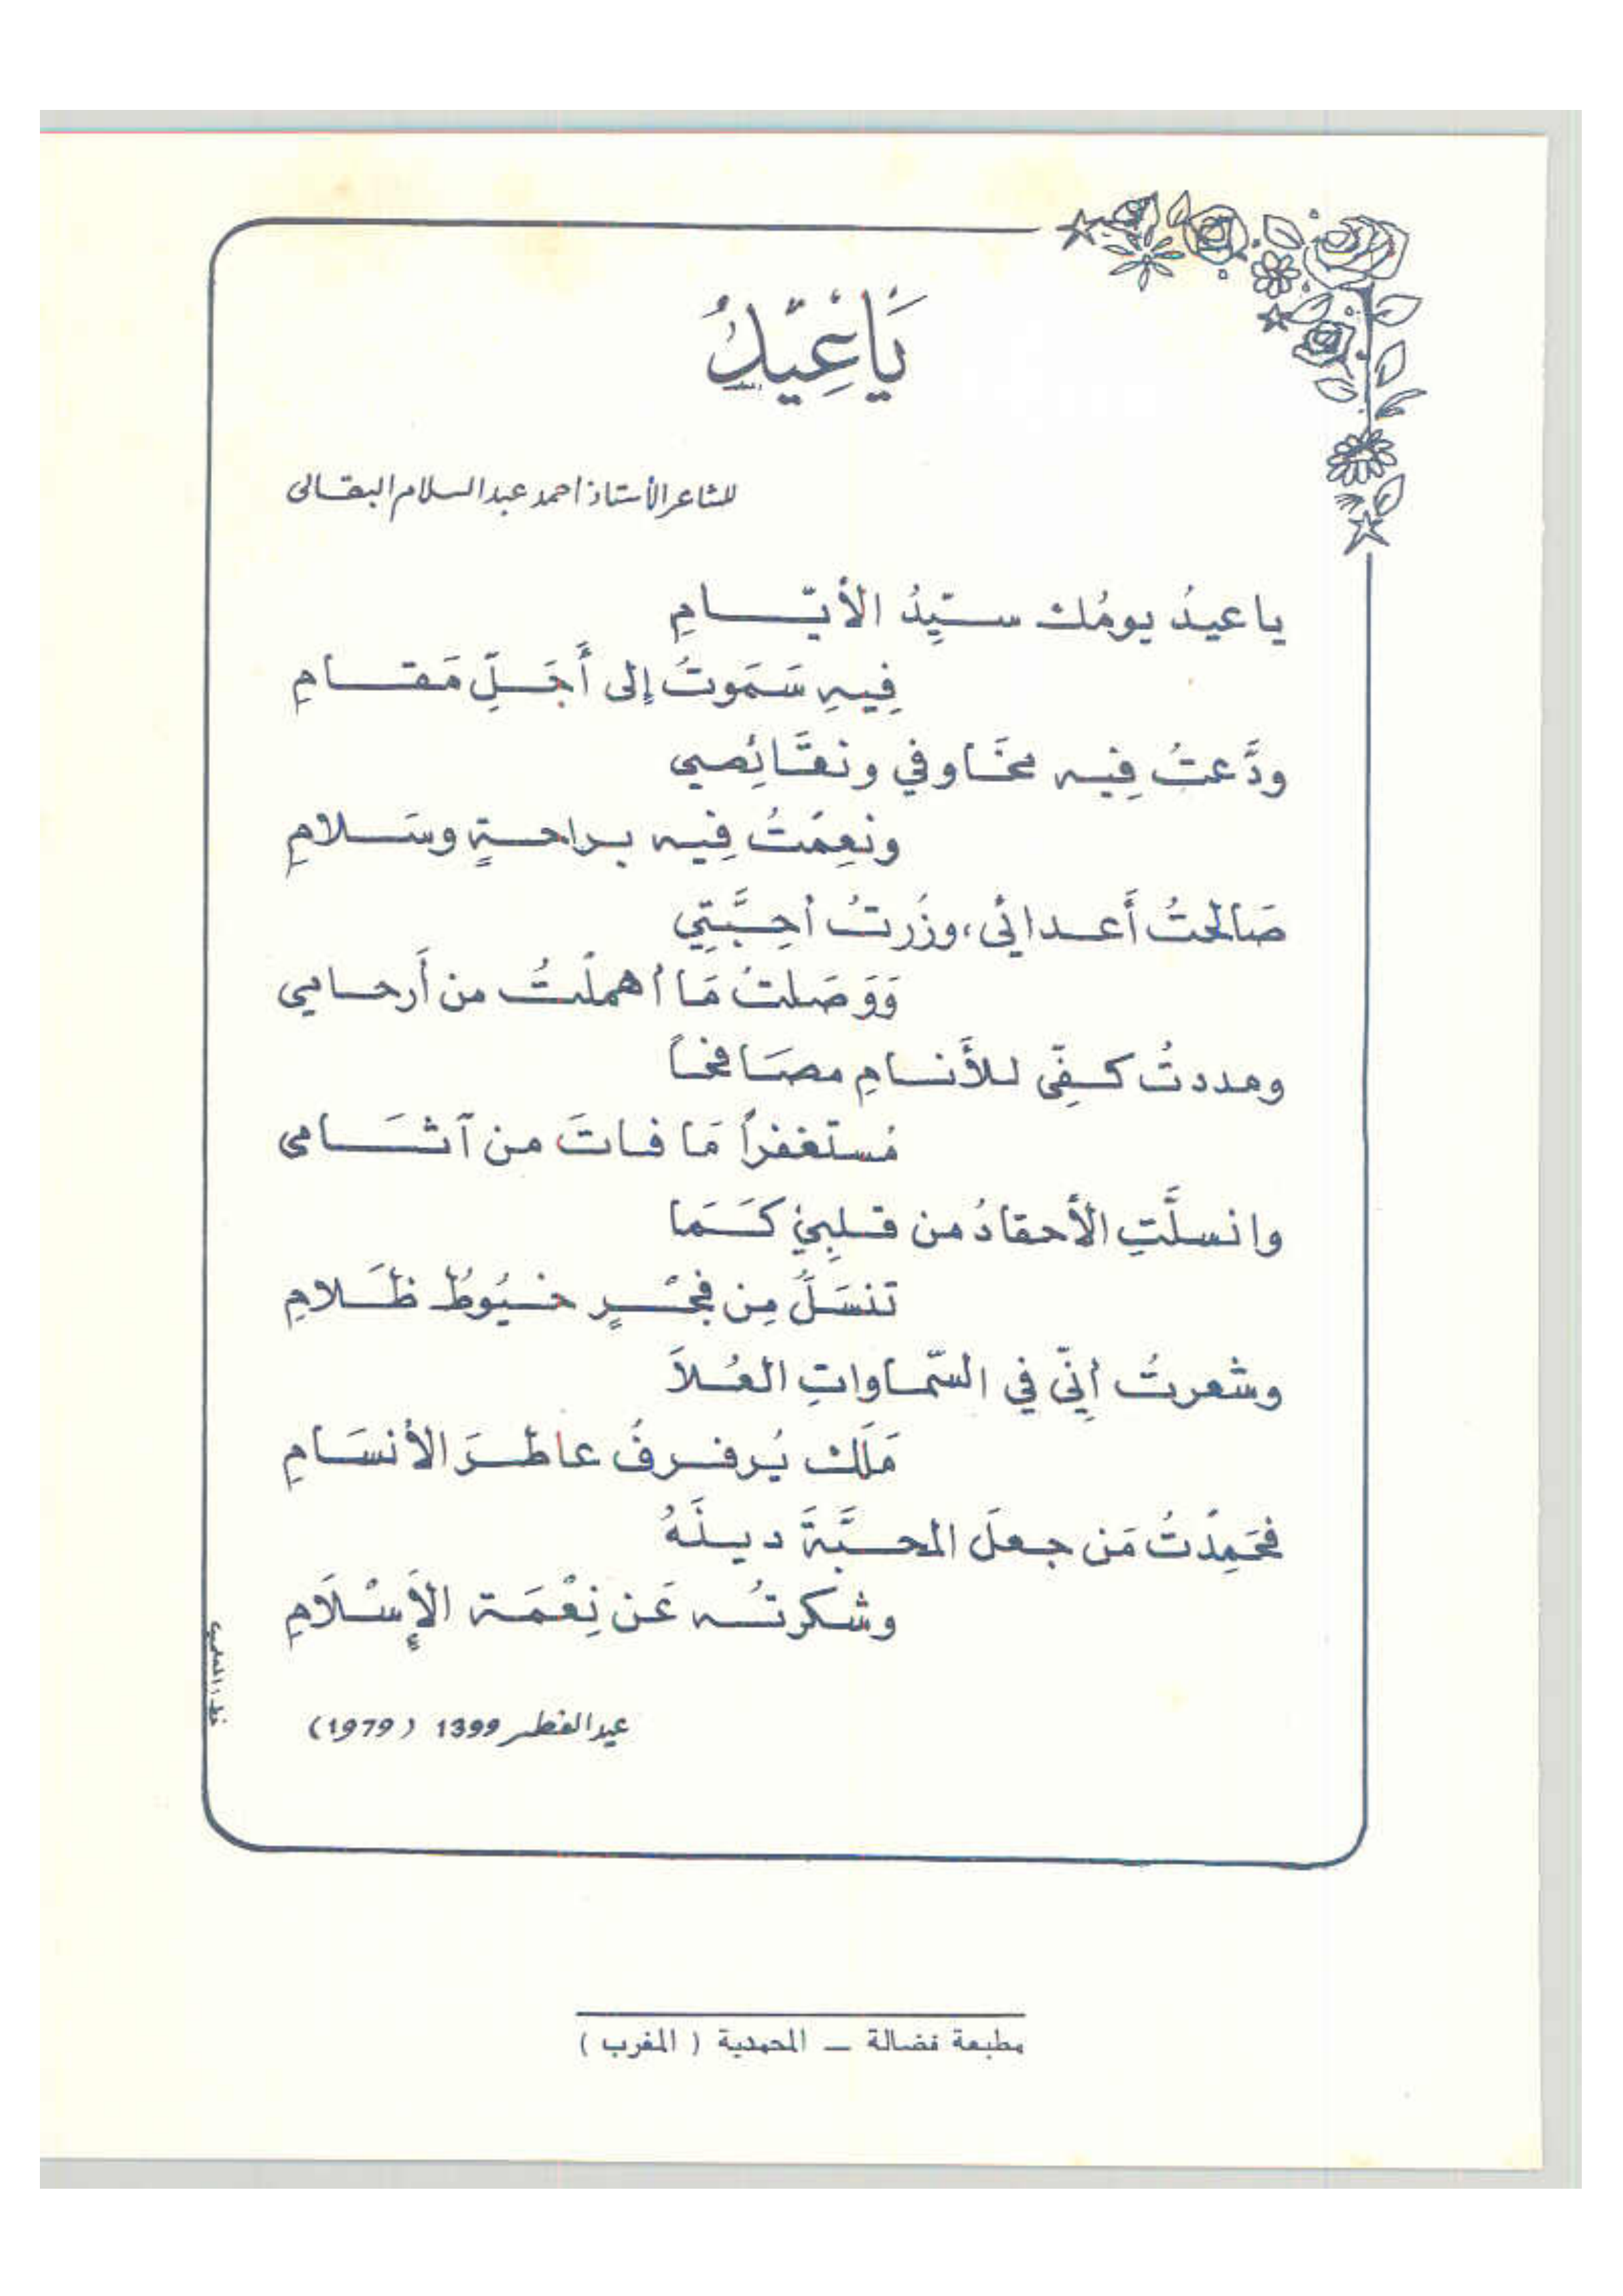 يَا عِيْدُ
للشاعر الأستاذ احمد عبد السلام البقالى
يا عيدُ يومُك سيّدُ الأيّـــامِ
فِيهِ سَمَوتُ إلى أَجَـلِّ مَقـــامِ
ودَّعتُ فِيه مخَاوفي ونقَائِصي
ونعِمْتُ فِيه براحـةٍ وسَــلامِ
صَالحتُ أَعـدائي، وزُرتُ أحِـبَّتِي
وَوَصَلتُ مَا أهملْتُ من أَرحـامي
ومددتُ كـفِّي للأَنـامِ مصَافحاً
مُستغفراً مَا فـاتَ من آثـَــامى
وانسلَّتِ الأحقادُ من قـلبِيْ كَـمَا
تنسَـلُّ مِن فجْـرٍ خـيُوطُ ظَـلامِ
وشعرتُ أنِّي في السّمـاواتِ العُـلاَ
مَلَك يُرفـرفُ عاطـرَ الأنسَـامِ
فحَمِدْتُ مَن جعلَ المحـبَّةَ دينَهُ
وشكرتـُه عَن نِعْمَـة الإِسْلاَمِ
عيد الفطر 1399 (1979)
مطبعة فضالة – المحمدية ( المغرب )